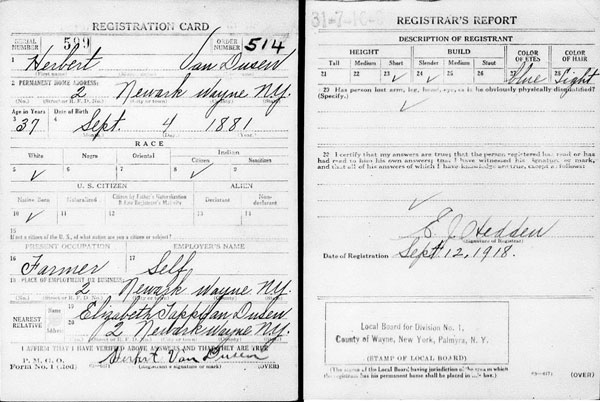 REGISTRATION CARD
SERIAL NUMBER 599 ORDER NUMBER 514
1 Herbert Van Dusen
(First name) (Last name)
2 PERMANENT HOME ADDRESS:
2 Newark Wayne N.Y.
(No.) (Street or R. F. D. No.) (City or town) (County) (State)
Age in Years Date of Birth
3 37 4 Sept. 4 1881
(Month.) (Day.) (Year.)
RACE
White Negro Oriental Indian
Citizen Noncitizen
5 ✓ 6 7 8 9
U. S. CITIZEN ALIEN
Native Born Naturalized Citizen by Father's Naturalization Before Registrant's Majority Declarant Non-declarant
10 ✓ 11 12 13 14
15
If not a citizen of the U. S., of what nation are you a citizen or subject?
PRESENT OCCUPATION EMPLOYER'S NAME
16 Farmer 17 Self
18 PLACE OF EMPLOYMENT OR BUSINESS:
2 Newark Wayne N.Y.
(No.) (Street or R. F. D. No.) (City or town) (County) (State)
NEAREST RELATIVE Name 19 Elizabeth Tapp Van Dusen
Address 20 2 Newark Wayne N.Y.
(No.) (Street or R. F. D. No.) (City or town) (County) (State)
I AFFIRM THAT I HAVE VERIFIED ABOVE ANSWERS AND THAT THEY ARE TRUE
P. M. G. O.
Form No. 1 (Red) Van Dusen
(Registrant's signature or mark) (OVER)
31-7-10-
REGISTRAR'S REPORT
DESCRIPTION OF REGISTRANT
HEIGHT BUILD COLOR OF EYES COLOR OF HAIR
Tall Medium Short Slender Medium Stout
21 22 23 ✓ 24 ✓ 25 26 27 Blue 28 Light
29 Has person lost arm, leg, hand, eye, or is he obviously physically disqualified?
(Specify.)
✓
30 I certify that my answers are true; that the person registered has read or has
had read to him his own answers; that I have witnessed his signature or mark,
and that all of his answers of which I have knowledge are true, except as follows:
✓
E. J. Hedden
(Signature of Registrar)
Date of Registration Sept. 12, 1918.
Local Board for Division No. 1,
County of Wayne, New York, Palmyra, N. Y.
(STAMP OF LOCAL BOARD)
(The stamp of the Local Board having jurisdiction of the area in which
the registrant has his permanent home shall be placed in this box.)
(OVER)